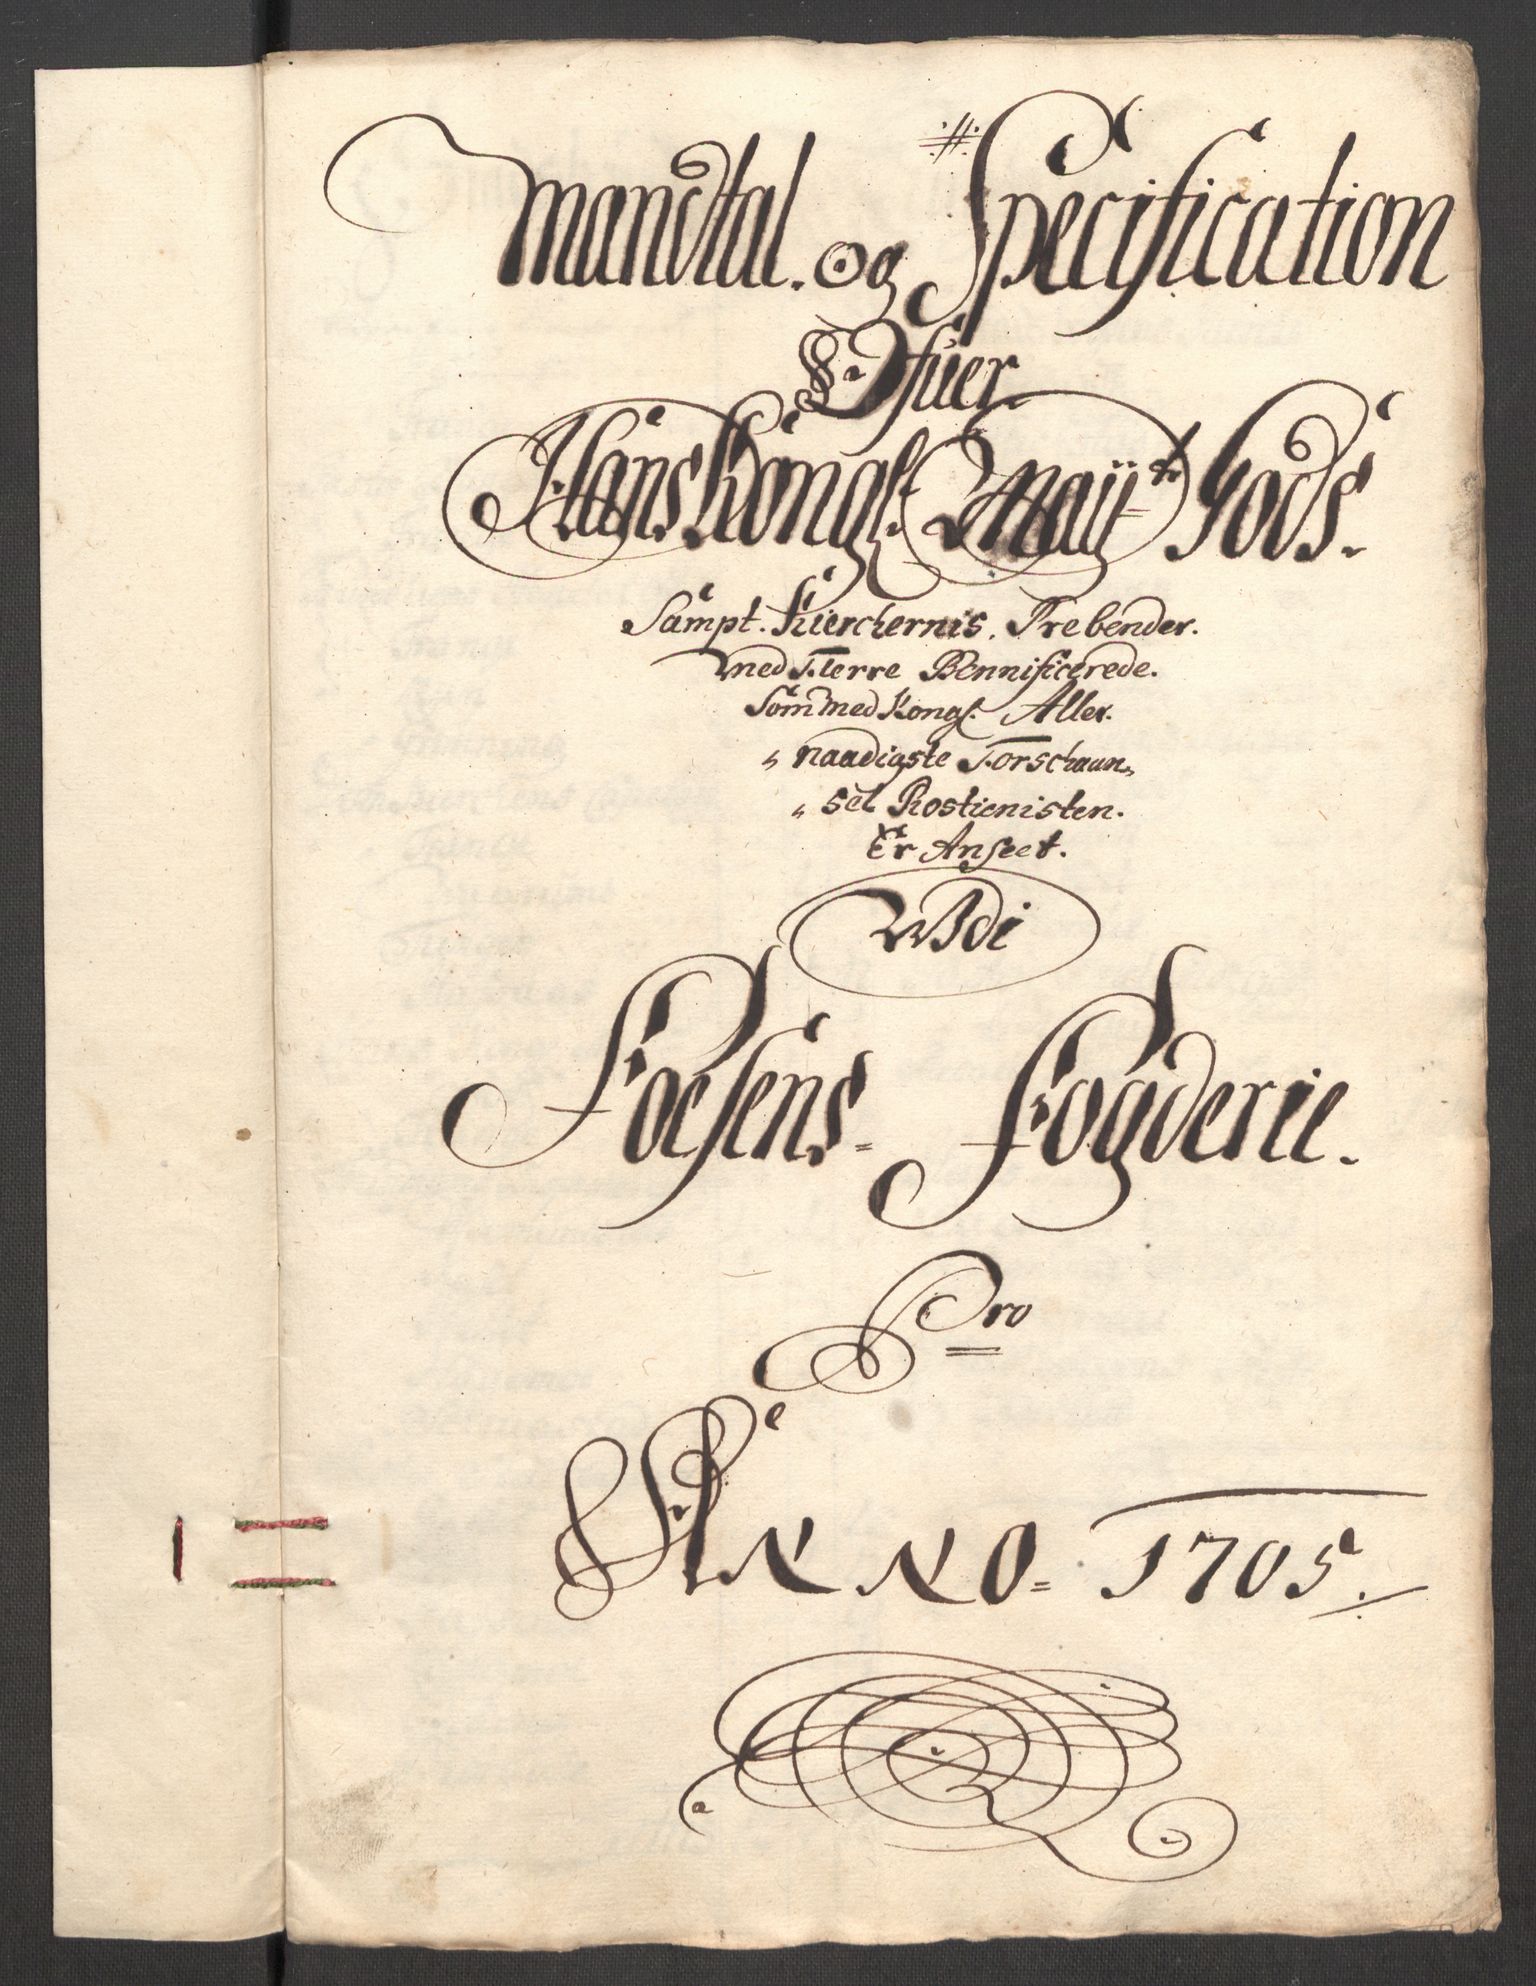 Mandtal. og Specification
Ofuer
Hans Kongl: Maÿtz Gods.
Sampt. Kierchernis. Prebender.
med Flerre Bennificerede.
Som med Kongl. Aller.
naadigste Forschaun„
„ sel Rostienisten.
Er Anseet.
Udi
Foesens Fogderie.
Pro
ANNO= 1705.